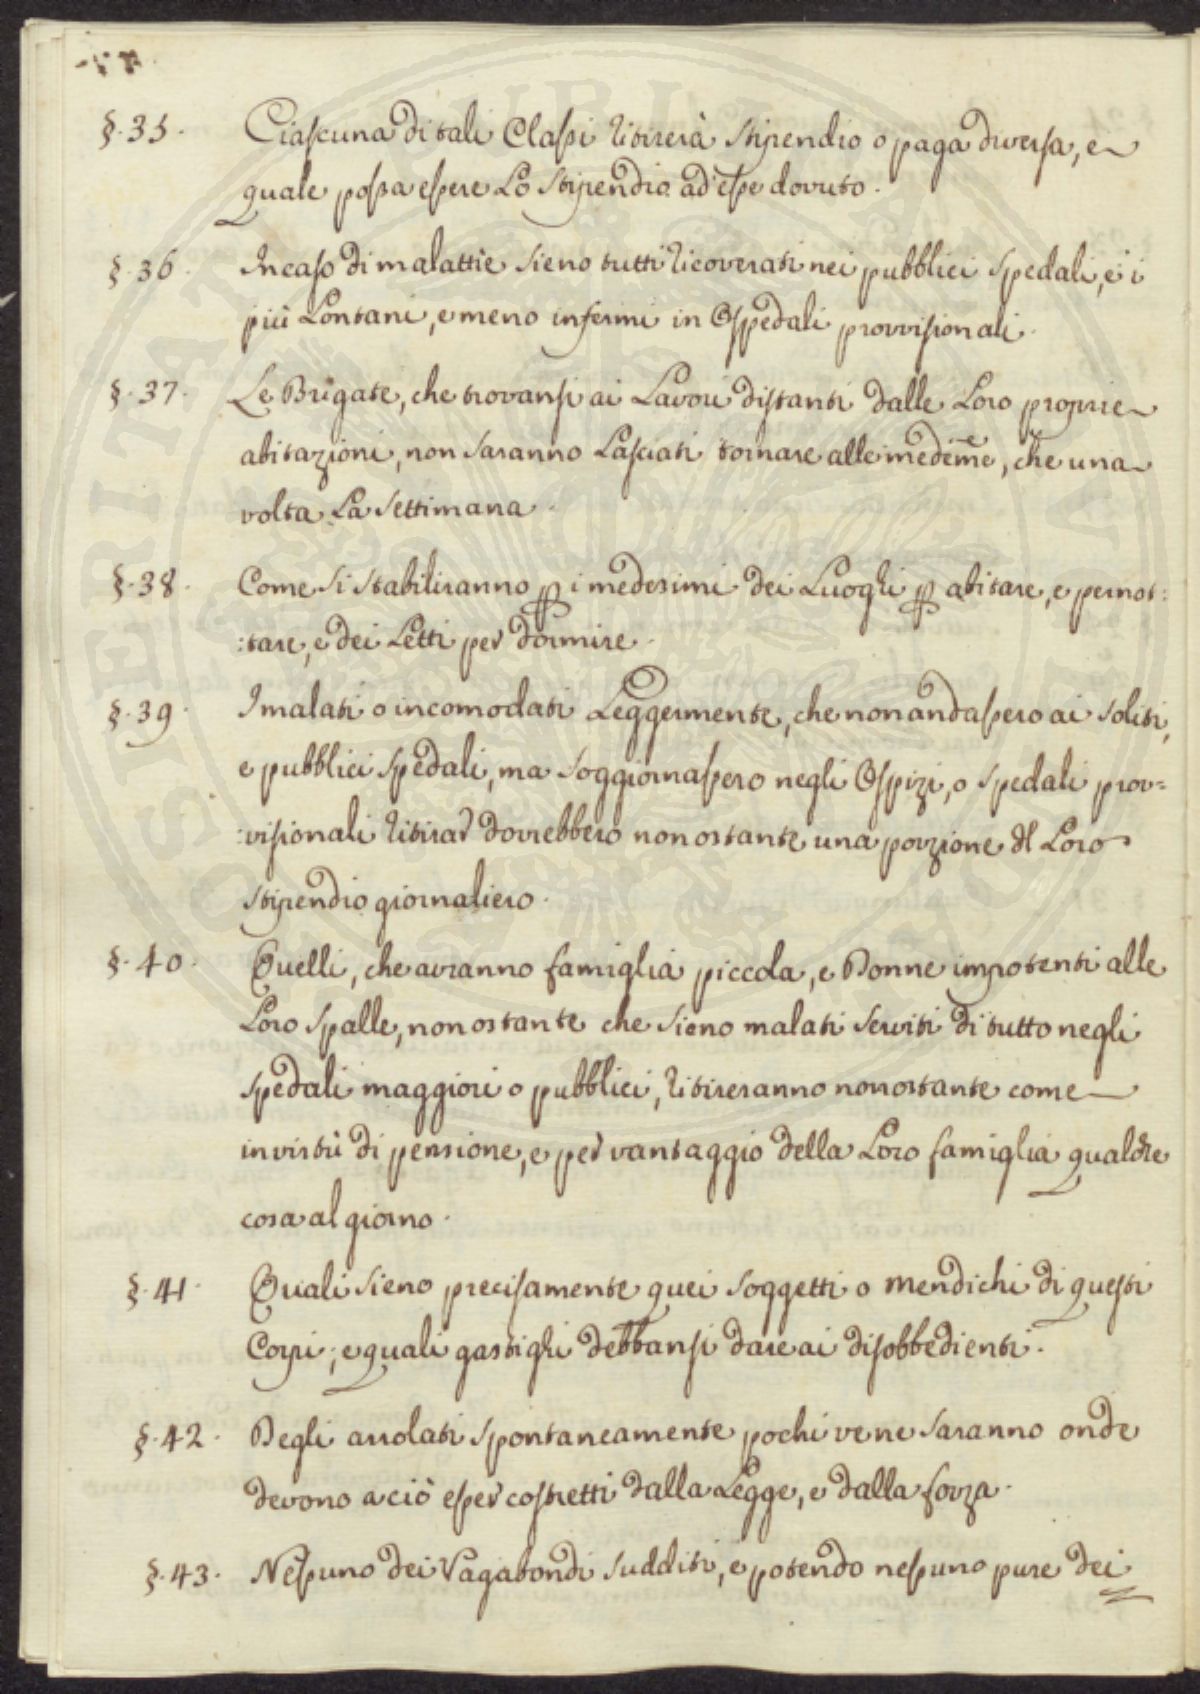 §. 35. Ciascuna di tali Classi ritirerà stipendio o paga diversa, e
quale possa essere Lo stipendio ad esse dovuto.
§. 36. In caso di malattie sieno tutti ricoverati nei pubblici spedali, e i
più Lontani, e meno infermi in Ospedali provvisionali.
§. 37. Le Brigate, che trovansi ai Lavori distanti dalle Loro proprie
abitazioni, non saranno Lasciati tornare alle medeme, che una
volta La settimana.
§. 38. Come si stabiliranno p i medesimi dei Luoghi p abitare, e pernot:
:tare, e dei Letti per dormire.
§. 39. I malati o incomodati Leggermente, che non andassero ai soliti,
e pubblici spedali, ma soggiornassero negli Ospizi, o spedali prov=
:visionali ritirar dovrebbero non ostante una porzione dl Loro
stipendio giornaliero.
§. 40. Quelli, che avranno famiglia piccola, e Donne impotenti alle
Loro spalle, non ostante che sieno malati serviti di tutto negli
spedali maggiori o pubblici, ritireranno nonostante come
in virtù di pensione, e per vantaggio della Loro famiglia qualche
cosa al giorno.
§. 41. Quali sieno precisamente quei soggetti o mendichi di questi
Corpi; e quali gastighi debbansi dare ai disobbedienti.
§. 42. Degli arrolati spontaneamente pochi ve ne saranno onde
devono a ciò esser costretti dalla Legge, e dalla forza.
§. 43. Nessuno dei Vagabondi sudditi, e potendo nessuno pure dei